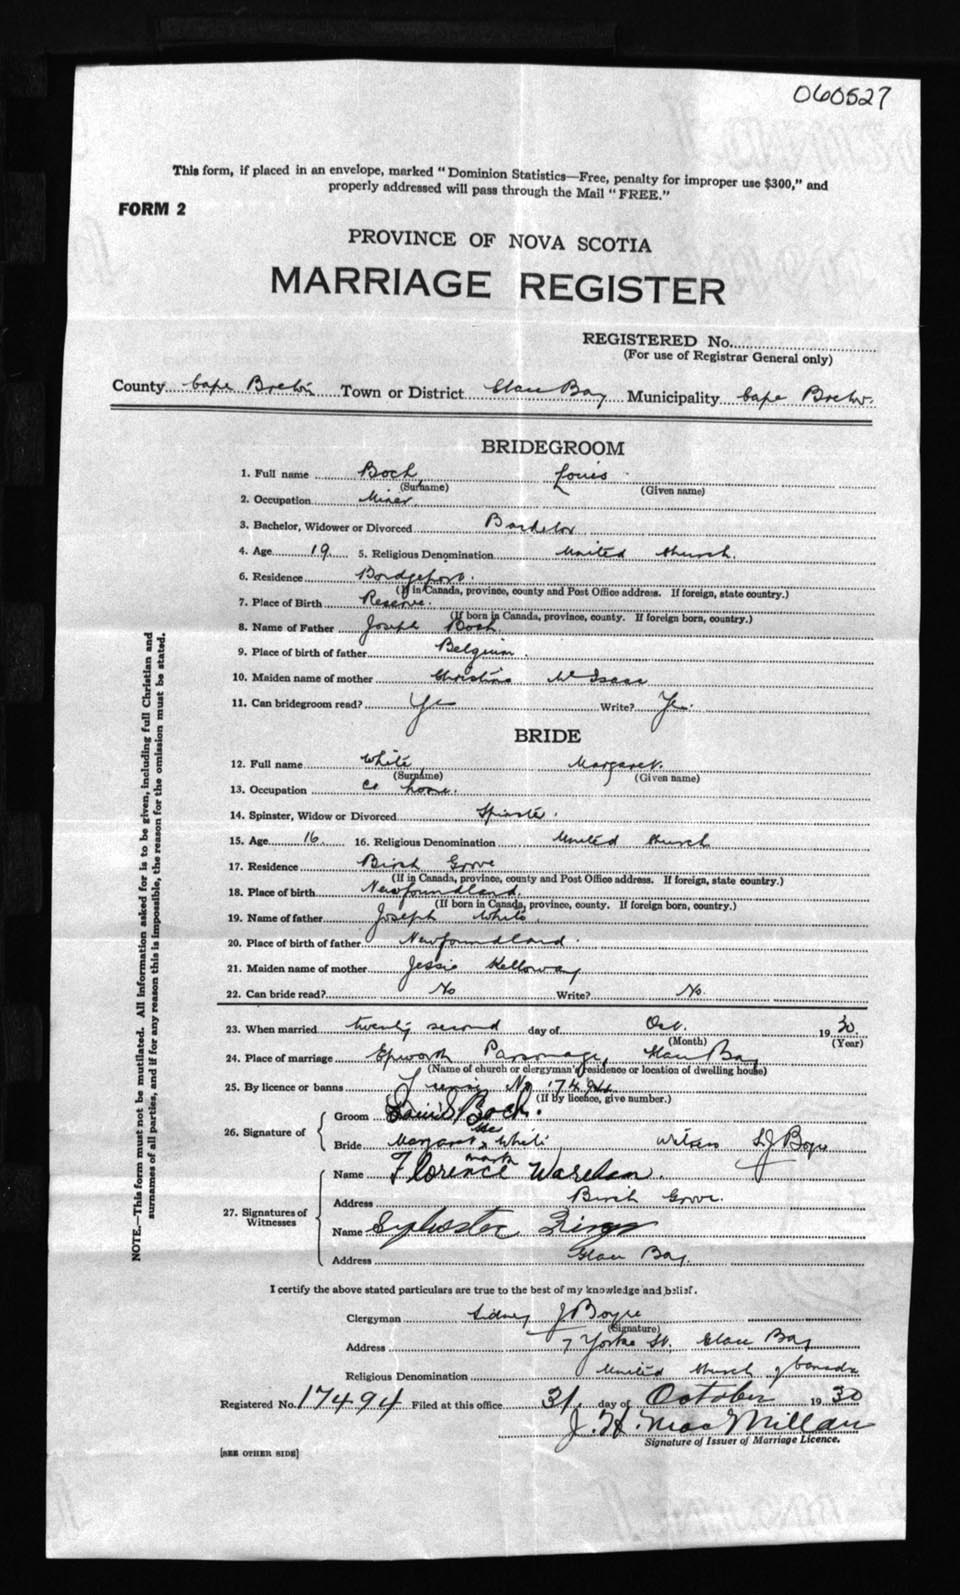 060527
This form, if placed in an envelope, marked "Dominion Statistics—Free, penalty for improper use $300," and
properly addressed will pass through the Mail "FREE."
FORM 2
PROVINCE OF NOVA SCOTIA
MARRIAGE REGISTER
REGISTERED No.
(For use of Registrar General only)
County Cape Breton Town or District Glace Bay Municipality Cape Breton
BRIDEGROOM
1. Full name Boch Louis
(Surname) (Given name)
2. Occupation Miner
3. Bachelor, Widower or Divorced Bachelor
4. Age 19 5. Religious Denomination United Church
6. Residence
(If in Canada, province, county and Post Office address. If foreign, state country.)
7. Place of Birth Reserve
(If born in Canada, province, county. If foreign born, country.)
8. Name of Father Joseph Boch
9. Place of birth of father Belgium
10. Maiden name of mother Christina McIsaac
11. Can bridegroom read? Yes Write? Yes
BRIDE
12. Full name White Margaret
(Surname) (Given name)
13. Occupation at home
14. Spinster, Widow or Divorced Spinster
15. Age 16 16. Religious Denomination United Church
17. Residence Birch Grove
(If in Canada, province, county and Post Office address. If foreign, state country.)
18. Place of birth Newfoundland
(If born in Canada, province, county. If foreign born, country.)
19. Name of father Joseph White
20. Place of birth of father Newfoundland
21. Maiden name of mother Jessie Kelloway
22. Can bride read? No Write? No
23. When married twenty second day of Oct. 1930
(Month) (Year)
24. Place of marriage Epworth Parsonage, Glace Bay
(Name of church or clergyman's residence or location of dwelling house)
25. By licence or banns No 17494
(If by licence, give number.)
26. Signature of
Groom Louis Boch.
Bride Margaret her x mark White witness S J Boyce
27. Signatures of Witnesses
Name Florence Wareham.
Address Birch Grove.
Name Sylvester
Address Glace Bay
NOTE.—This form must not be mutilated. All information asked for is to be given, including full Christian and
surnames of all parties, and if for any reason this is impossible, the reason for the omission must be stated.
I certify the above stated particulars are true to the best of my knowledge and belief.
Clergyman Sidney J Boyce
(Signature)
Address 7 Yorke St. Glace Bay
Religious Denomination United Church of Canada
Registered No. 17494 Filed at this office 31 day of October 1930
J. H. MacMillan
Signature of Issuer of Marriage Licence.
[SEE OTHER SIDE]